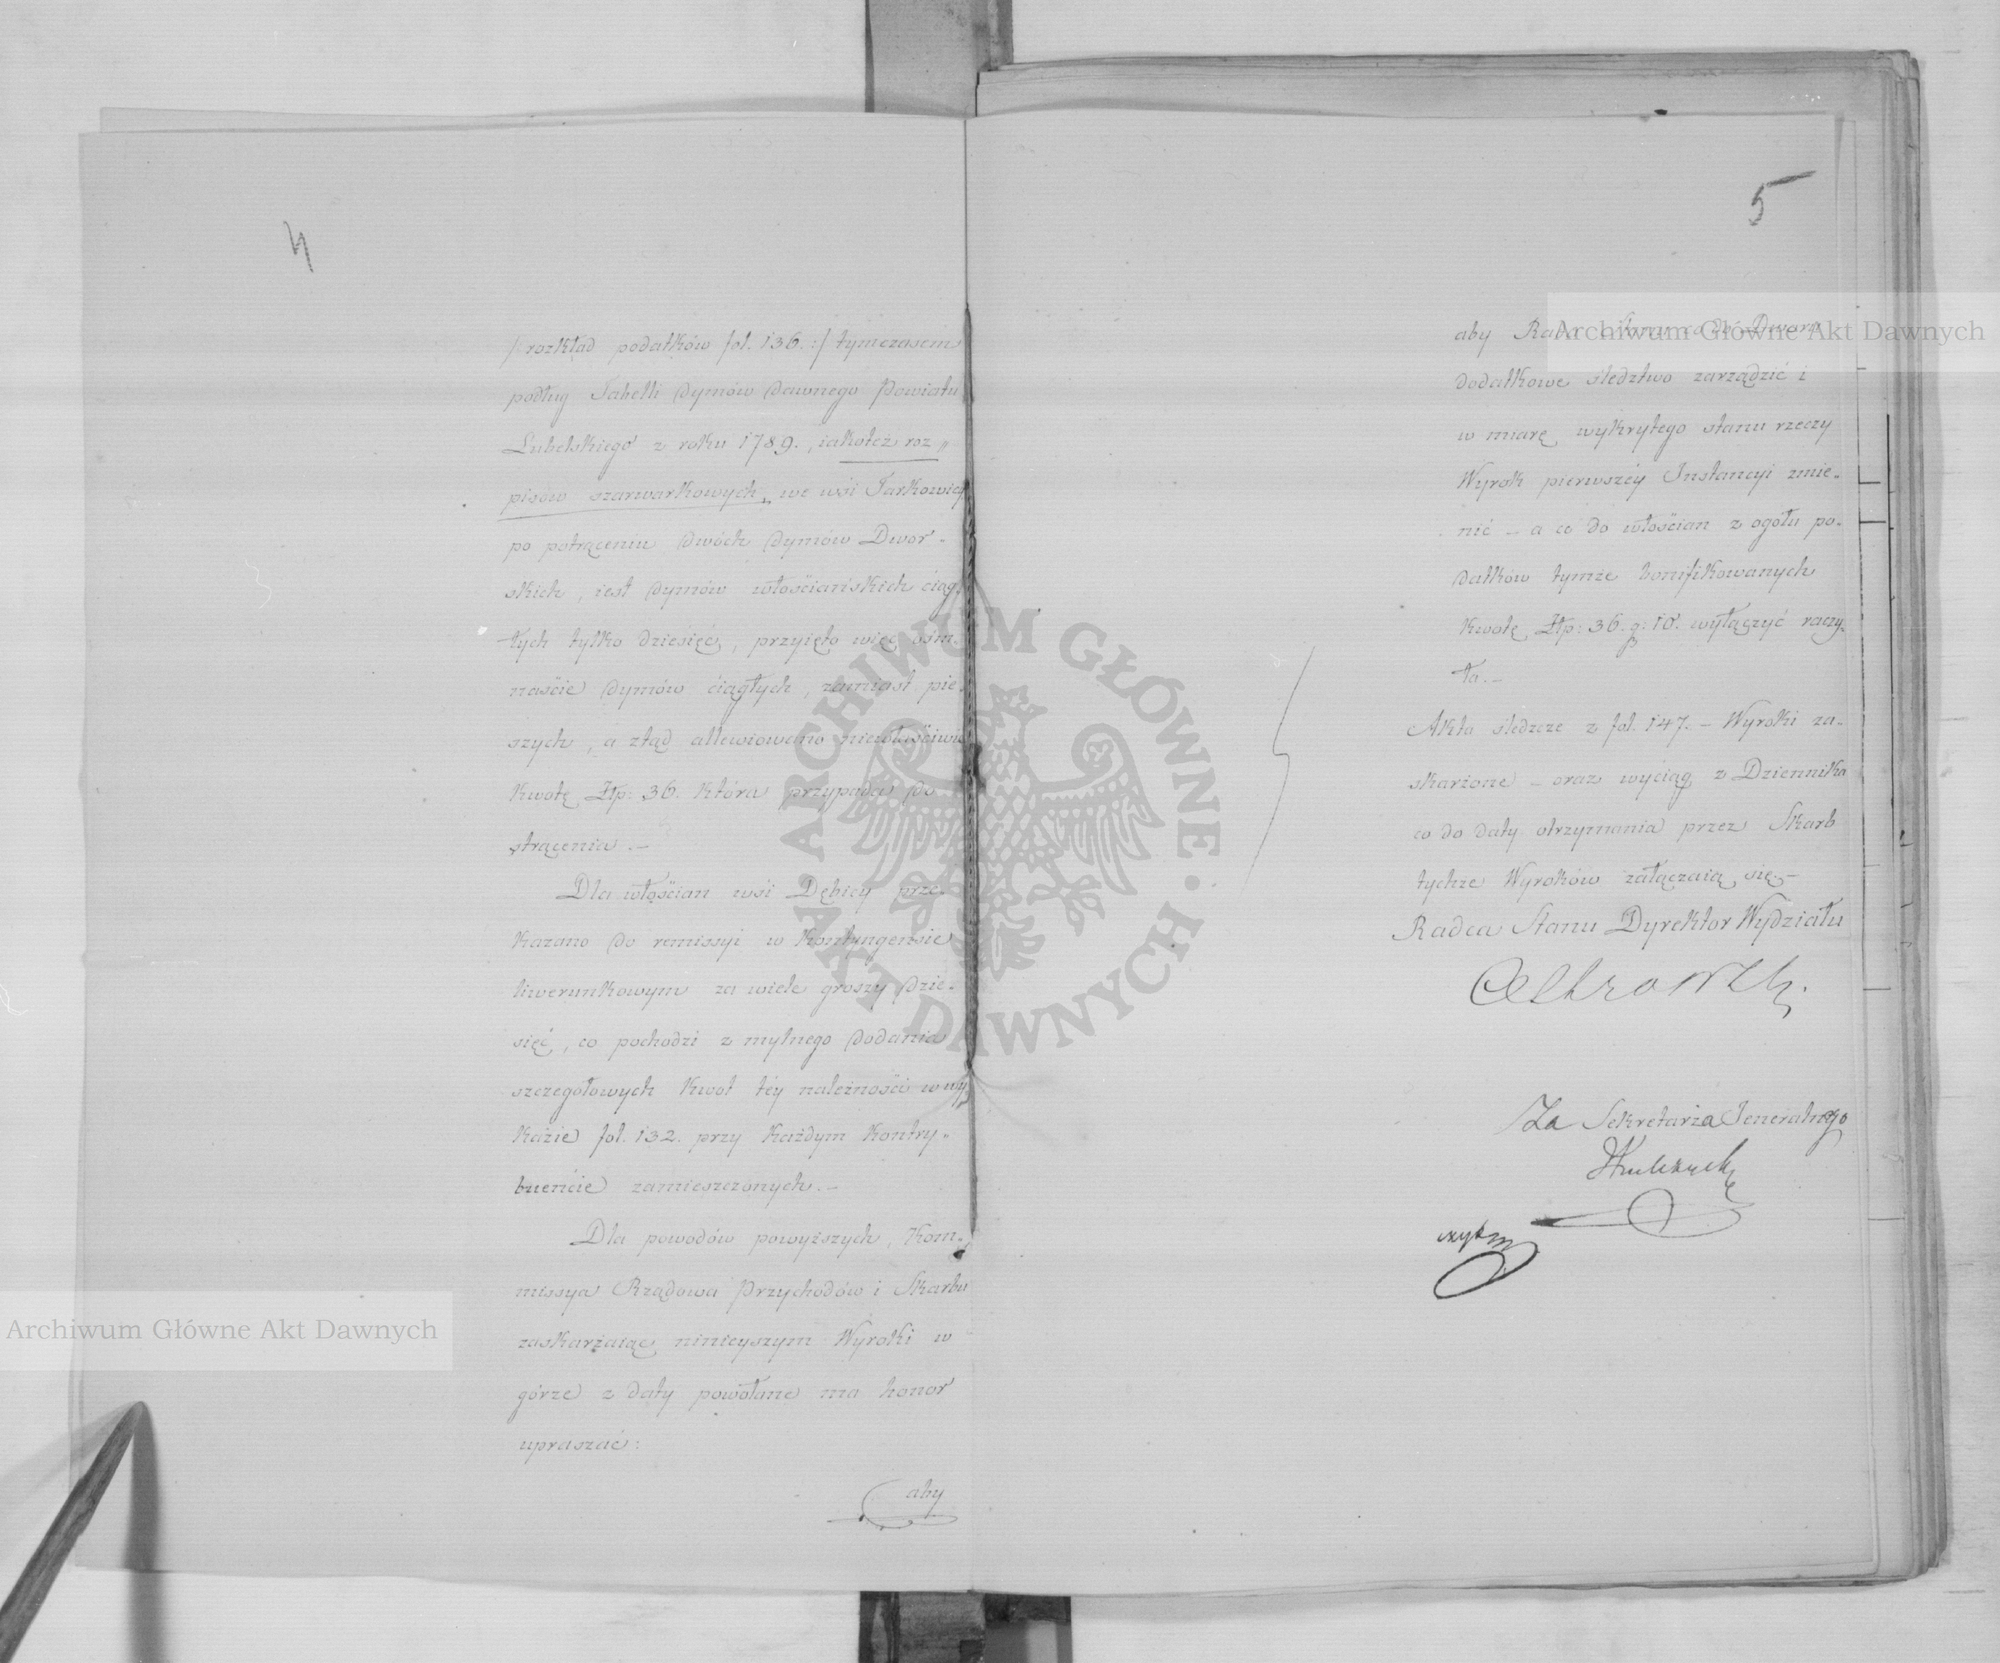 4
/: rozkład podatków fol. 136. :/ tymczasem
podług Tabelli dymów dawnego Powiatu
Lubelskiego z roku 1789., iakoteż roz„
pisów szarwarkowych, we wsi Tarkowicy
po potrąceniu dwóch dymów Dwor-
skich, iest dymów włościańskich ciąg
łych tylko dziesięć, przyięto więc ośm-
naście dymów ciągłych, zamiast pie-
szych, a ztąd allewiowano niewłaściwie
kwotę Złp: 36. która przypada do
strącenia.-
Dla włościan wsi Dębicy prze-
kazano do remissyi w kontyngensie
liwerunkowym za wiele groszy dzie-
sięć, co pochodzi z mylnego dodania
szczegółowych kwot téy należności w wy
kazie fol. 132. przy każdym kontry„
buencie zamieszczonych.-
Dla powodów powyższych, Kom-
missya Rządowa Przychodów i Skarbu
zaskarżaiąc ninieyszym Wyroki w
górze z daty powołane ma honor
upraszać:
aby
5
aby Rada Stanu co do Dworu
dodatkowe śledztwo zarządzić i
w miarę wykrytego stanu rzeczy
Wyrok pierwszéy Instancyi zmie-
nić - a co do włościan z ogółu po-
datków tymże bonifikowanych
kwotę Złp: 36. g: 10. wyłączyć raczy-
ła.-
Akta śledcze z fol. 147. - Wyroki za-
skarżone - oraz wyciąg z Dziennika
co do daty otrzymania przez Skarb
tychże Wyroków załączaią się.-
Radca Stanu Dyrektor Wydziału
Za Sekretarza Jeneralnego
Archiwum Główne Akt Dawnych
Archiwum Główne Akt Dawnych
ARCHIWUM GŁÓWNE · AKT DAWNYCH ·